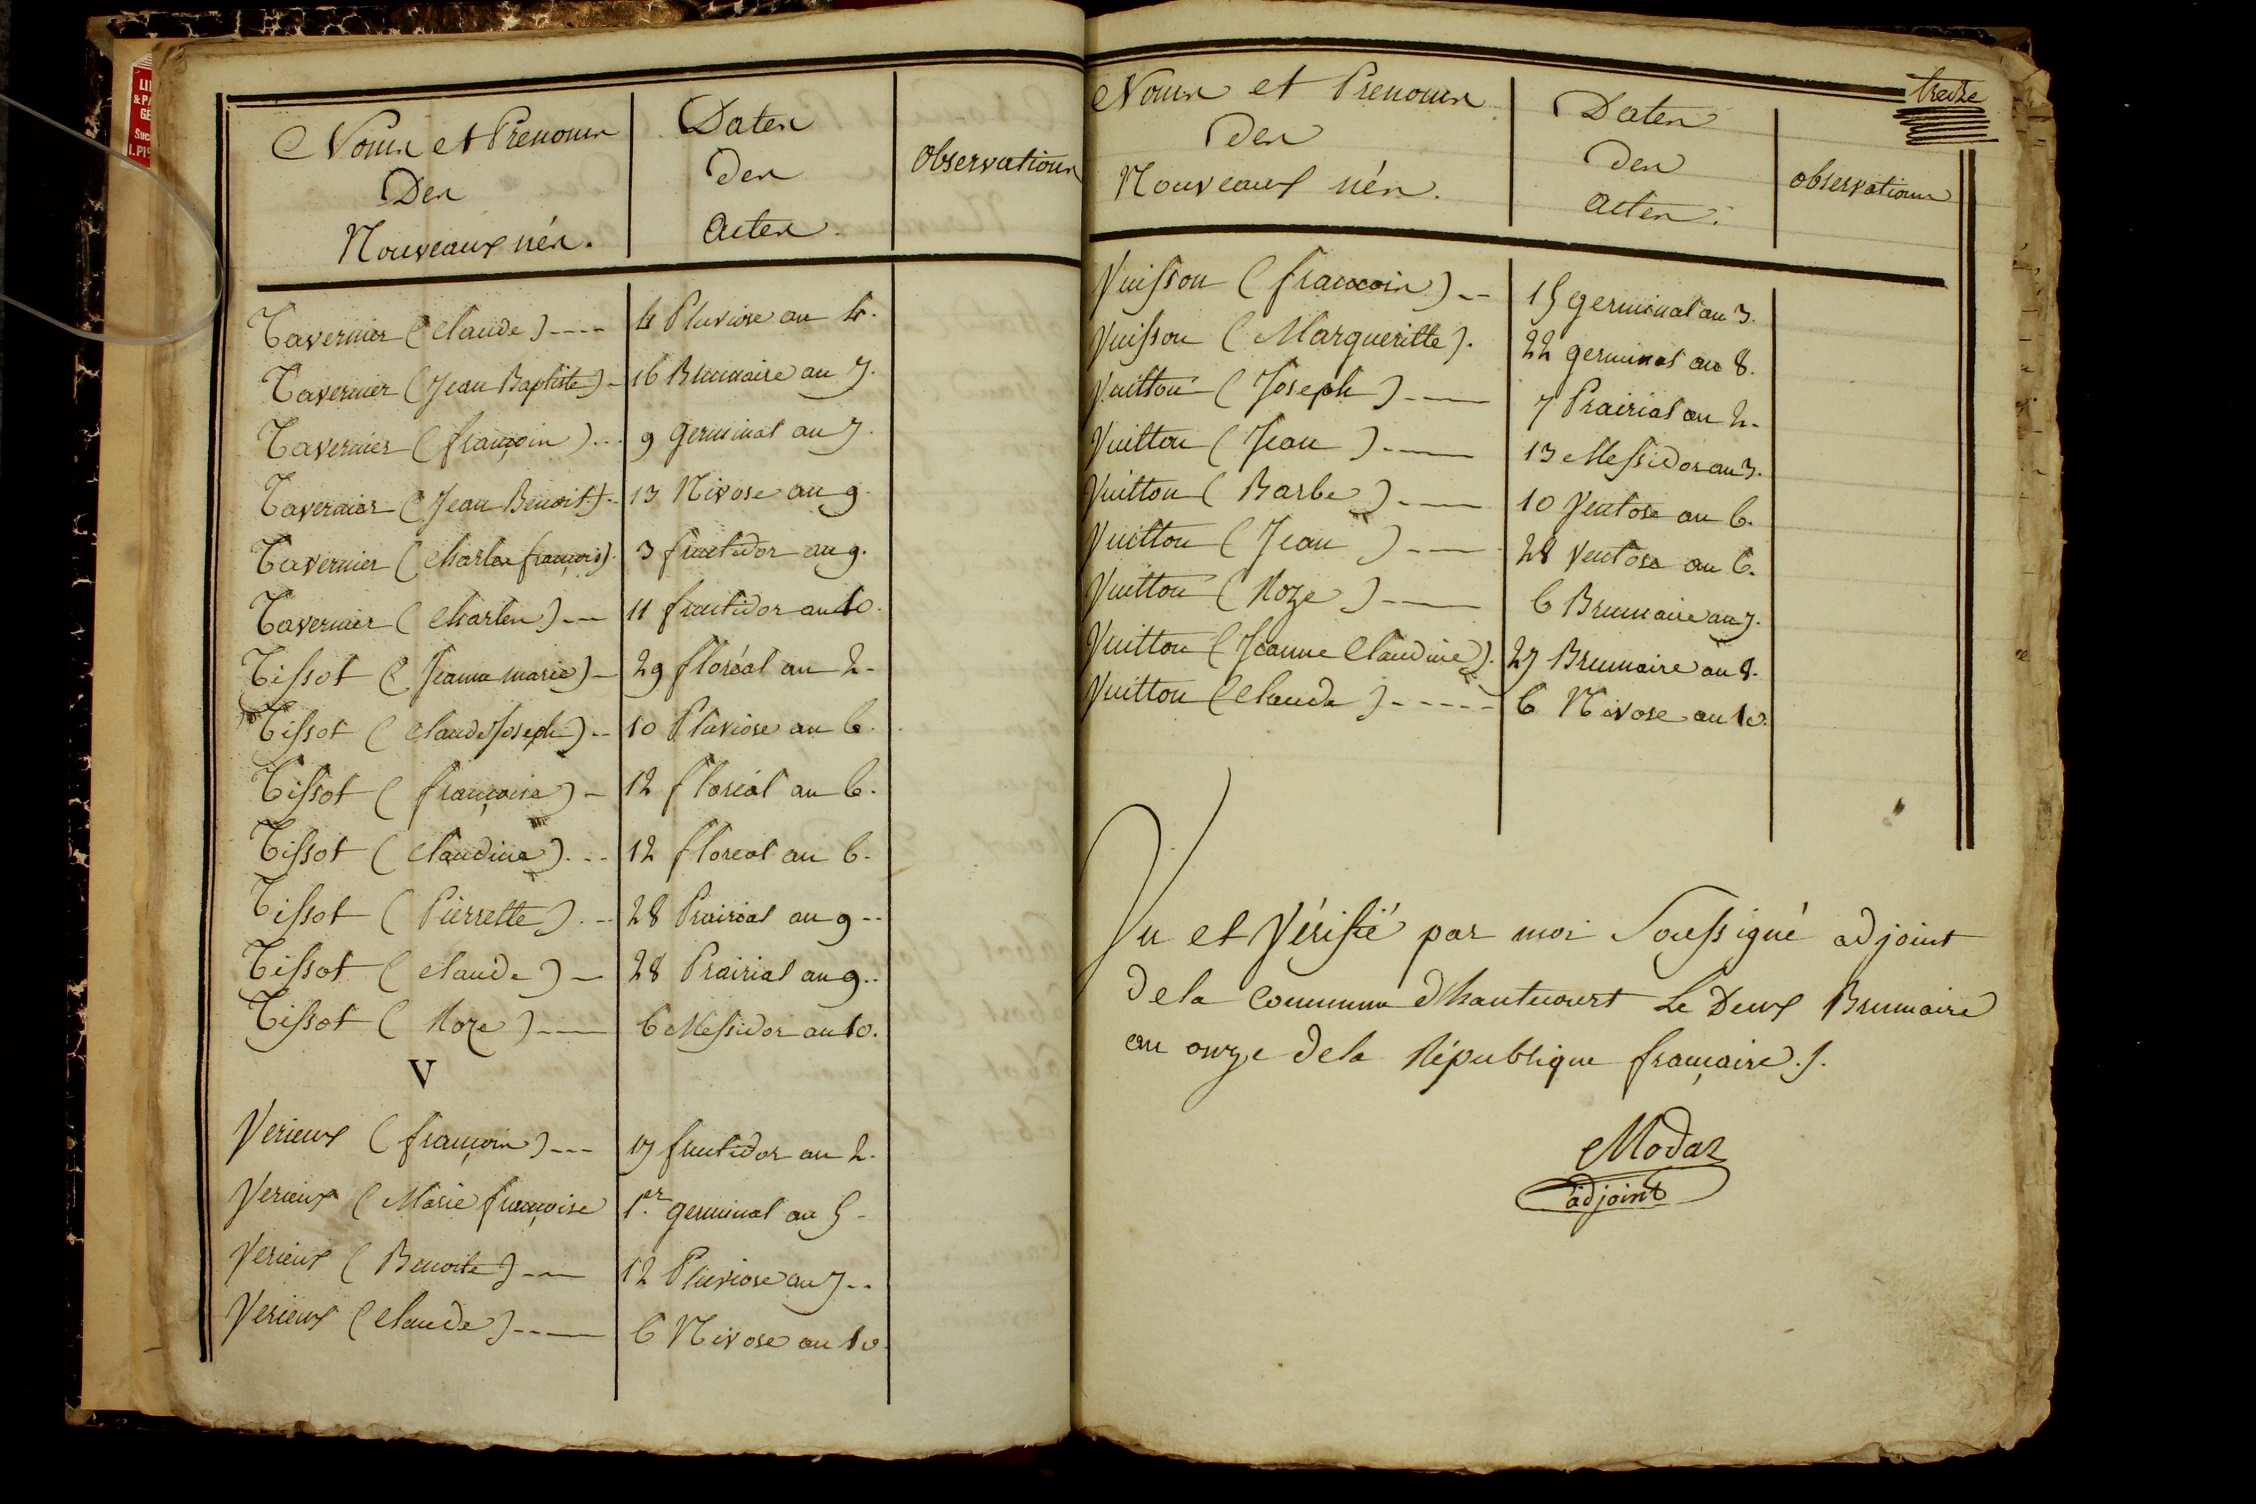 Noms et Prenoms
Des
Nouveaux nés.
Dates
des
Actes.
Observations
Tavernier (Claude) ----
4 Pluviose an 4.
Tavernier (Jean Baptiste) -
16 Brumaire an 7.
Tavernier (françois) ...
9 Germinal an 7.
Tavernier (Jean Benoit) -
13 Nivose an 9.
Tavernier (Charles françois).
3 fructidor an 9.
Tavernier (Charles) ---
11 fructidor an 10.
Tissot (Jeanne marie) -
29 floréal an 2-
Tissot (Claude Joseph) --
10 Pluviose an 6.
Tissot (françoise) -
12 floréal an 6.
Tissot (Claudine). --
12 floréal an 6.
Tissot (Pierrette). --
28 Prairial an 9 --
Tissot (Claude) --
28 Prairial an 9..
Tissot (Roze) ----
6 Messidor an 10.
V
Verieux (françois) ---
17 fructidor an 2.
Verieux (Marie françoise
1.er germinal an 5-
Verieux (Benoite) ---
12 Pluviose an 7--
Verieux (Claude) ----
6 Nivose an 10.
treize
Noms et Prenoms
des
Nouveaux nés.
Dates
des
Actes.
Observations
Vuisson (francois) --
15 germinal an 3.
Vuisson (Margueritte).
22 germinal an 8.
Vuitton (Joseph) ----
7 Prairial an 2-
Vuitton (Jean) ----
13 Messidor an 3.
Vuitton (Barbe) ----
10 Ventose an 6.
Vuitton (Jean) ----
28 Ventose an 6.
Vuitton (Roze) ----
6 Brumaire an 7.
Vuitton (Jeanne Claudine).
27 Brumaire an 8.
Vuitton (Claude) -----
6 Nivose an 10.
Vu et Vérifié par moi Soussigné adjoint
de la Commune d'hautecourt Le Deux Brumaire
an onze de la République française ./.
Modaz
adjoint